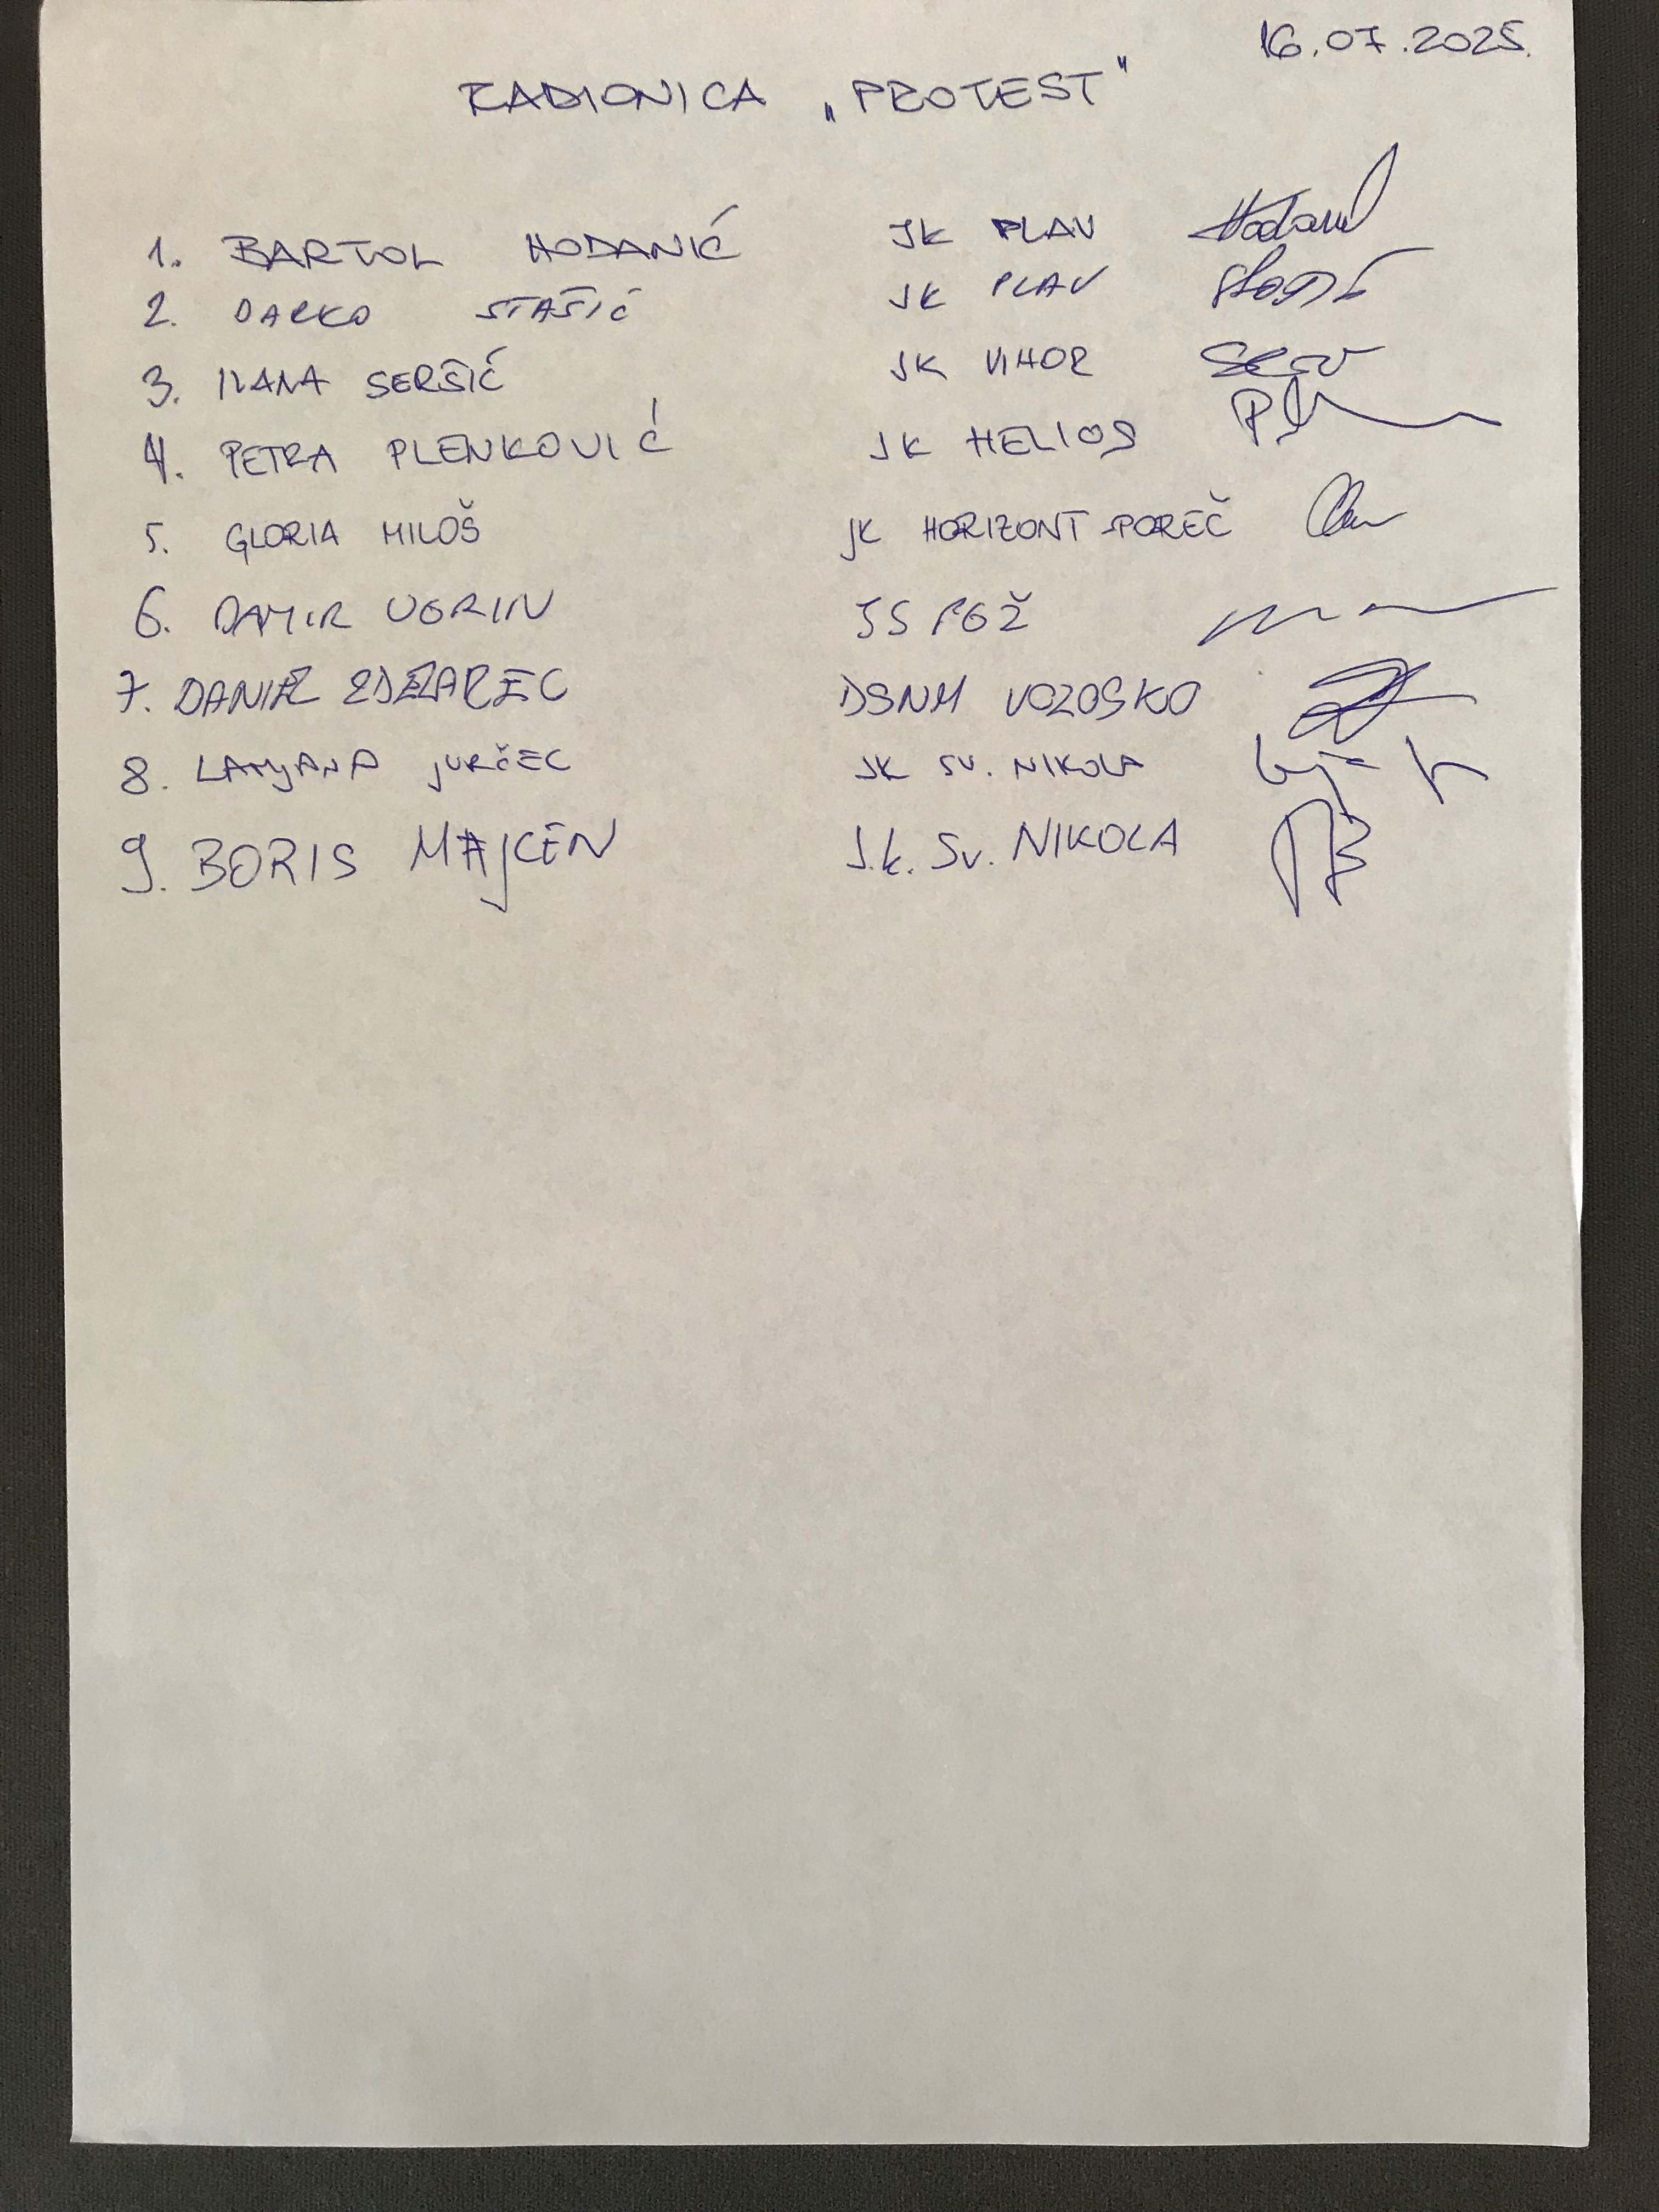 16.07.2025.
RADIONICA „PROTEST"
1. BARTOL HODANIĆ JK PLAV
2. DARKO STAŠIĆ JK PLAV
3. IVANA SERŠIĆ JK VIHOR
4. PETRA PLENKOVIĆ JK HELIOS
5. GLORIA MILOŠ JK HORIZONT POREČ
6. DAMIR VORIN JS PGŽ
7. DANIEL ZDEZAREC DSNM VOLOSKO
8. JURČEC JK SV. NIKOLA
9. BORIS MAJCEN J.K. SV. NIKOLA